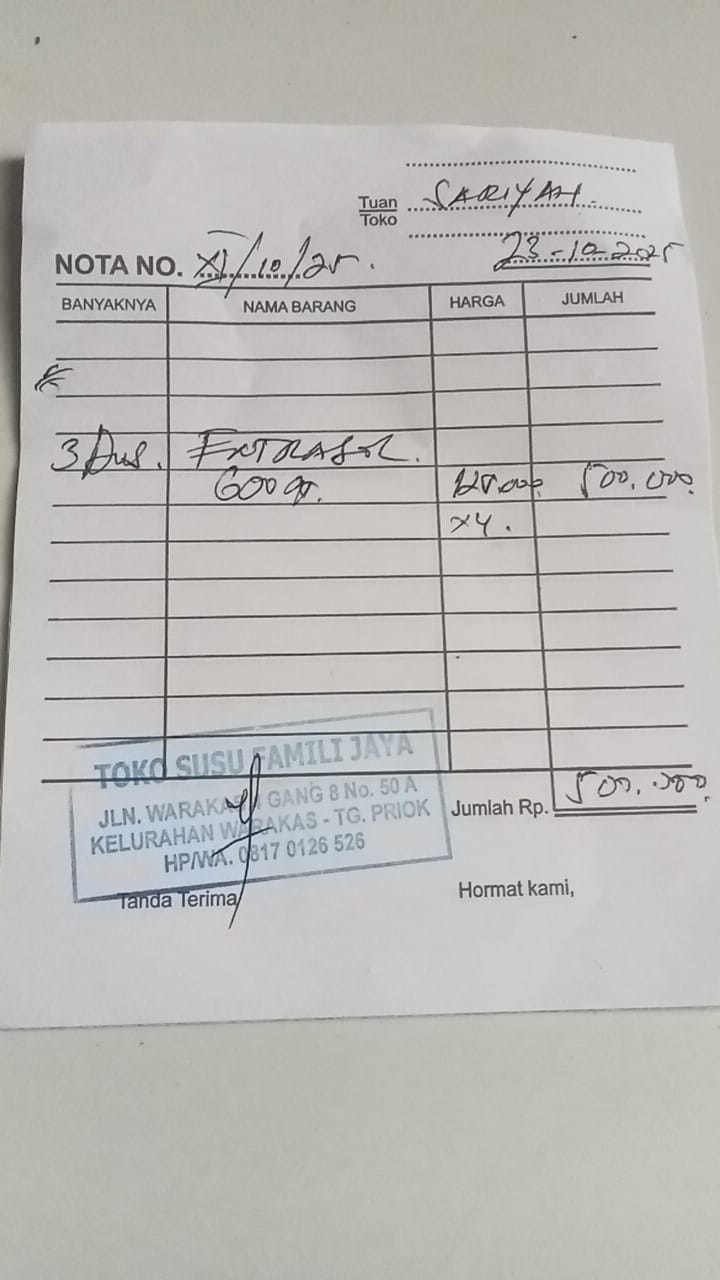 Tuan
Toko SARIYAH.
23-10-2025
NOTA NO. XI/10/25.
BANYAKNYA NAMA BARANG HARGA JUMLAH
3 Dus.
600 gr. 125.000 500.000
x4.
TOKO SUSU FAMILI JAYA
JLN. WARAKAS GANG 8 No. 50 A
KELURAHAN WARAKAS - TG. PRIOK
HP/WA. 0817 0126 526
Jumlah Rp. 500.000
Tanda Terima
Hormat kami,